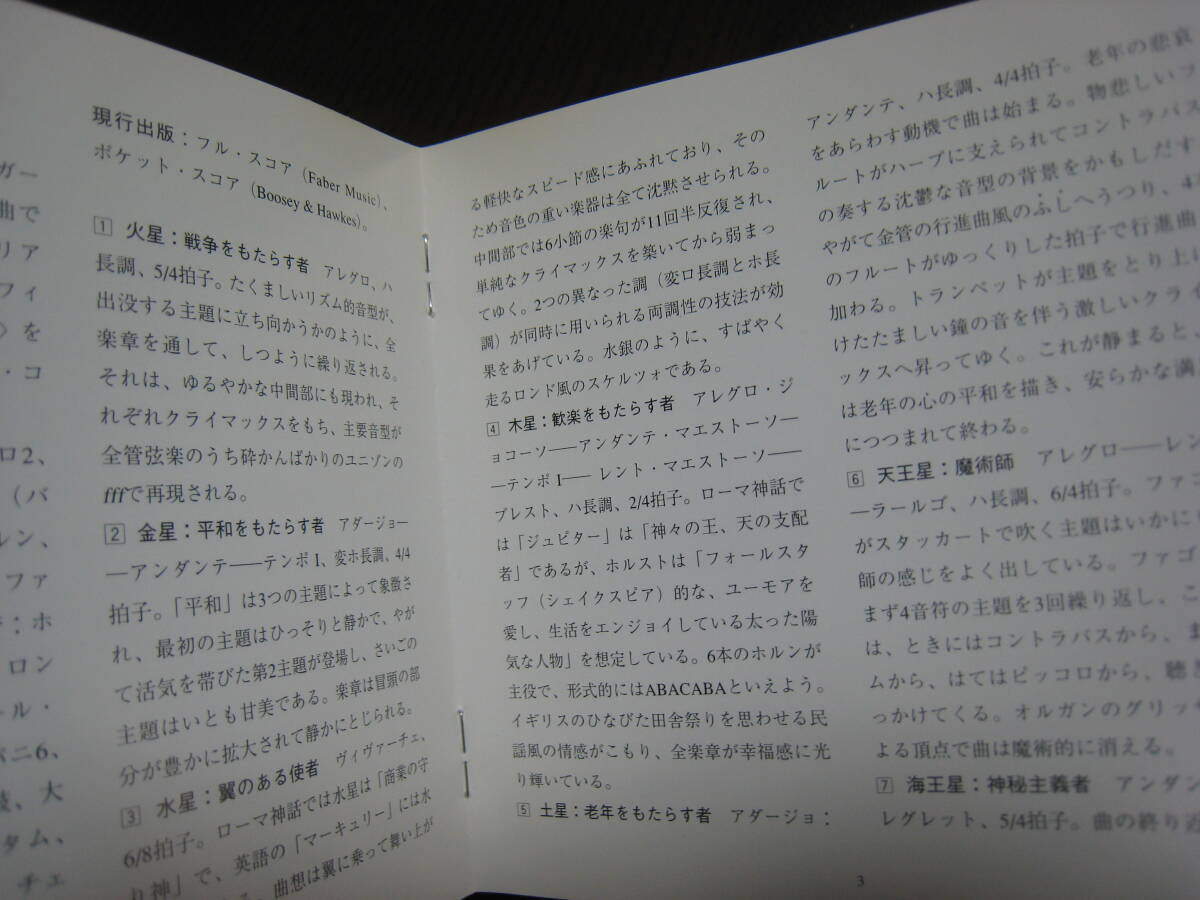 ガー
曲で
リア
フィ
〉を
・コ
ロ2、
（バ
レン、
ファ
：ホ
ロン
ール・
パニ6、
鼓、大
タム、
チェ
現行出版：フル・スコア（Faber Music）、
ポケット・スコア（Boosey & Hawkes）。
1 火星：戦争をもたらす者　アレグロ、ハ
長調、5/4拍子。たくましいリズム的音型が、
出没する主題に立ち向かうかのように、全
楽章を通して、しつように繰り返される。
それは、ゆるやかな中間部にも現われ、そ
れぞれクライマックスをもち、主要音型が
全管弦楽のうち砕かんばかりのユニゾンの
fffで再現される。
2 金星：平和をもたらす者　アダージョ―
―アンダンテ――テンポ I、変ホ長調、4/4
拍子。「平和」は3つの主題によって象徴さ
れ、最初の主題はひっそりと静かで、やが
て活気を帯びた第2主題が登場し、さいごの
主題はいとも甘美である。楽章は冒頭の部
分が豊かに拡大されて静かにとじられる。
3 水星：翼のある使者　ヴィヴァーチェ、
6/8拍子。ローマ神話では水星は「商業の守
り神」で、英語の「マーキュリー」には水
曲想は翼に乗って舞い上が
る軽快なスピード感にあふれており、その
ため音色の重い楽器は全て沈黙させられる。
中間部では6小節の楽句が11回半反復され、
単純なクライマックスを築いてから弱まっ
てゆく。2つの異なった調（変ロ長調とホ長
調）が同時に用いられる両調性の技法が効
果をあげている。水銀のように、すばやく
走るロンド風のスケルツォである。
4 木星：歓楽をもたらす者　アレグロ・ジ
ョコーソ――アンダンテ・マエストーソ―
―テンポ I――レント・マエストーソ――
プレスト、ハ長調、2/4拍子。ローマ神話で
は「ジュピター」は「神々の王、天の支配
者」であるが、ホルストは「フォールスタ
ッフ（シェイクスピア）的な、ユーモアを
愛し、生活をエンジョイしている太った陽
気な人物」を想定している。6本のホルンが
主役で、形式的にはABACABAといえよう。
イギリスのひなびた田舎祭りを思わせる民
謡風の情感がこもり、全楽章が幸福感に光
り輝いている。
5 土星：老年をもたらす者　アダージョ：
アンダンテ、ハ長調、4/4拍子。老年の悲哀
をあらわす動機で曲は始まる。物悲しいフ
ルートがハープに支えられてコントラバス
の奏する沈鬱な音型の背景をかもしだす
やがて金管の行進曲風のふしへうつり、4
のフルートがゆっくりした拍子で行進曲
加わる。トランペットが主題をとり上げ
けたたましい鐘の音を伴う激しいクライ
ックスへ昇ってゆく。これが静まると、
は老年の心の平和を描き、安らかな満
につつまれて終わる。
6 天王星：魔術師　アレグロ――レン
―ラールゴ、ハ長調、6/4拍子。ファゴ
がスタッカートで吹く主題はいかにも
師の感じをよく出している。ファゴ
まず4音符の主題を3回繰り返し、こ
は、ときにはコントラバスから、ま
ムから、はてはピッコロから、聴
っかけてくる。オルガンのグリッサ
よる頂点で曲は魔術的に消える。
7 海王星：神秘主義者　アンダン
レグレット、5/4拍子。曲の終り近
3